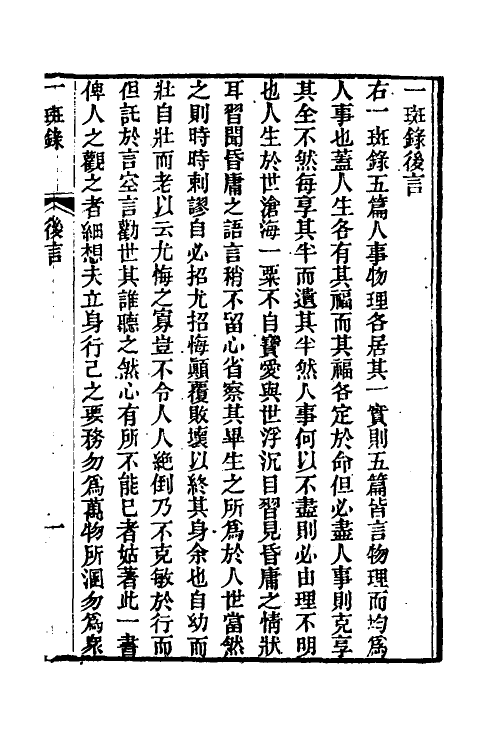 一斑錄後言
右一斑錄五篇人事物理各居其一實則五篇皆言物理而均爲
人事也蓋人生各有其福而其福各定於命但必盡人事則克享
其全不然每享其半而遺其半然人事何以不盡則必由理不明
也人生於世滄海一粟不自寶愛與世浮沉目習見昏庸之情狀
耳習聞昏庸之語言稍不留心省察其畢生之所爲於人世當然
之則時時刺謬自必招尤招悔顚覆敗壞以終其身余也自幼而
壯自壯而老以云尤悔之寡豈不令人人絶倒乃不克敏於行而
但託於言空言勸世其誰聽之然心有所不能已者姑著此一書
俾人之觀之者細想夫立身行己之要務勿爲萬物所溷勿爲衆
一斑錄
後言
一